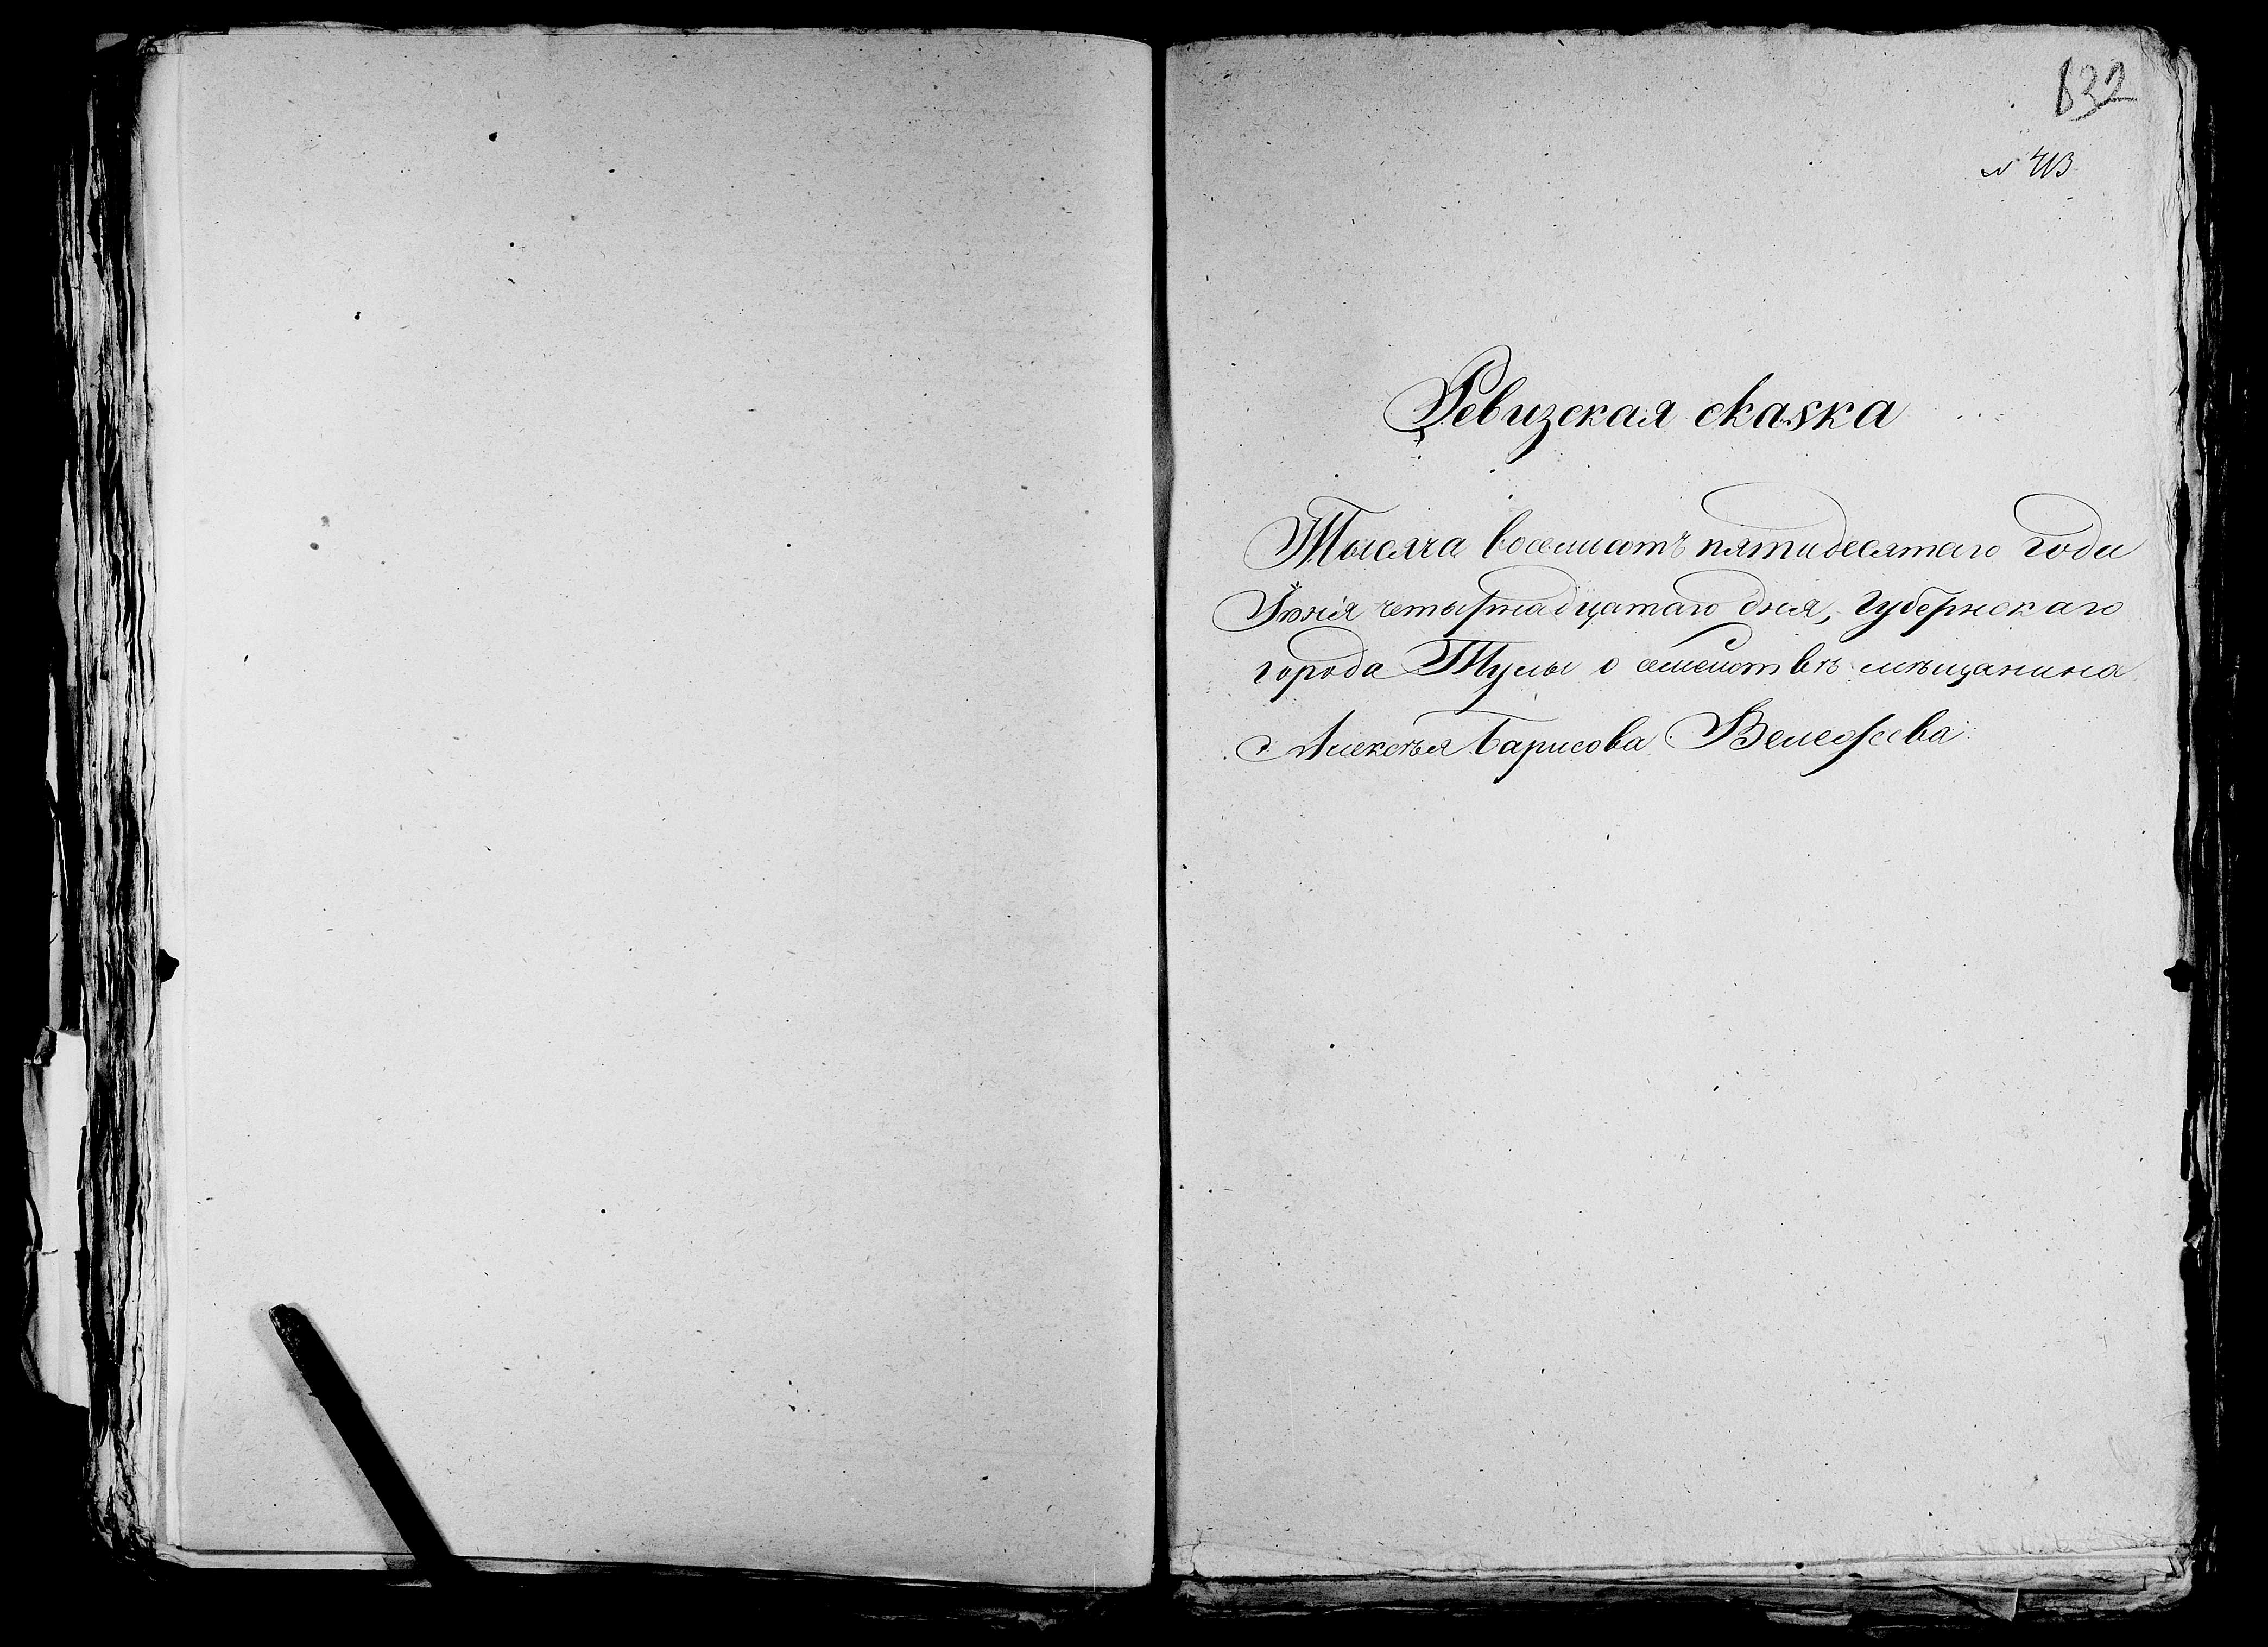 632
№ 413
Ревизская сказка
Тысяча восемьсотъ пятидесятаго года
Іюнія четырнадцатаго дня, Губернскаго
города Тулы о семействѣ мѣщанина
Алексѣя Барисова Велефеева